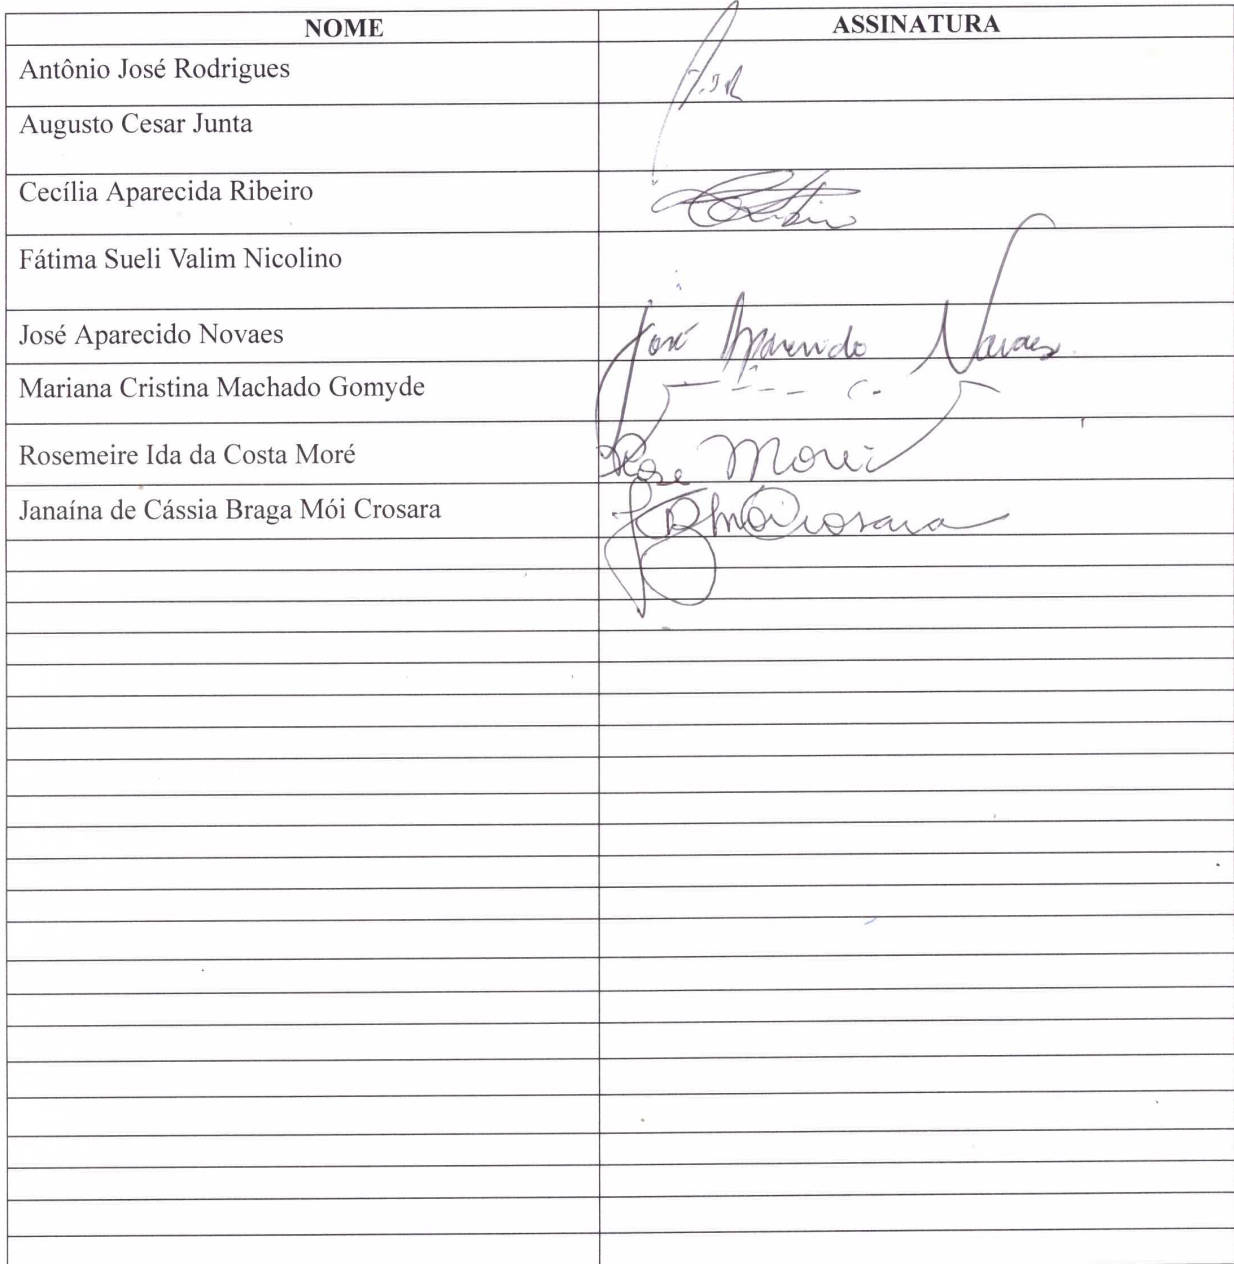 NOME ASSINATURA
Antônio José Rodrigues A.J.R
Augusto Cesar Junta
Cecília Aparecida Ribeiro
Fátima Sueli Valim Nicolino
José Aparecido Novaes José Aparecido Novaes
Mariana Cristina Machado Gomyde
Rosemeire Ida da Costa Moré Rose Moré
Janaína de Cássia Braga Mói Crosara